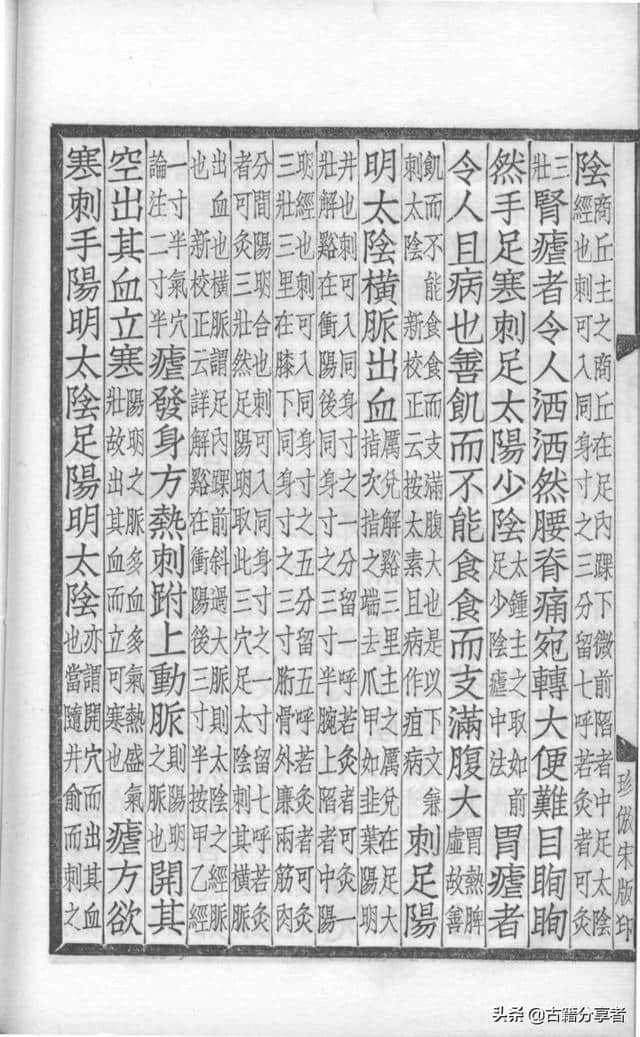 陰商丘主之商丘在足內踝下微前陷者中足太陰經也刺可入同身寸之三分留七呼若灸者可灸
三壯腎瘧者令人洒洒然腰脊痛宛轉大便難目眴眴
然手足寒刺足太陽少陰太鍾主之取如前足少陰瘧中法胃瘧者
令人且病也善飢而不能食食而支滿腹大胃熱脾虛故善
飢而不能食食而支滿腹大也是以下文兼刺太陰 新校正云按太素且病作疽病刺足陽
明太陰橫脈出血厲兌解谿三里主之厲兌在足大指次指之端去爪甲如韭葉陽明
井也刺可入同身寸之一分留一呼若灸者可灸一壯解谿在衝陽後同身寸之三寸半腕上陷者中陽
明經也刺可入同身寸之五分留五呼若灸者可灸三壯三里在膝下同身寸之三寸䯒骨外廉兩筋內
分間陽明合也刺可入同身寸之一寸留七呼若灸者可灸三壯然足陽明取此三穴足太陰刺其橫脈
出血也橫脈謂足內踝前斜過大脈則太陰之經脈也 新校正云詳解谿在衝陽後三寸半按甲乙經
一寸半氣穴論注二寸半瘧發身方熱刺跗上動脈則陽明之脈也開其
空出其血立寒陽明之脈多血多氣熱盛氣壯故出其血而立可寒也瘧方欲
寒刺手陽明太陰足陽明太陰亦謂開穴而出其血也當隨井俞而刺之
珍倣宋版印
头条@古籍分享者